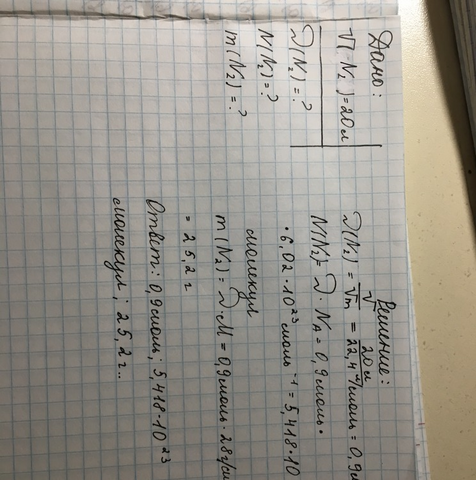 Дано:
V(N₂)=20л
𝜈(N₂)=?
N(N₂)=?
m(N₂)=?
Решение:
𝜈(N₂) = V/Vm = 20л/22,4л/моль = 0,9м
N(N₂)= 𝜈 · Nᴀ = 0,9моль·
·6,02·10²³моль⁻¹=5,418·10
молекул
m(N₂)= 𝜈·M=0,9моль·28г/м
= 25,2г
Ответ: 0,9моль; 5,418·10²³
молекул; 25,2г..